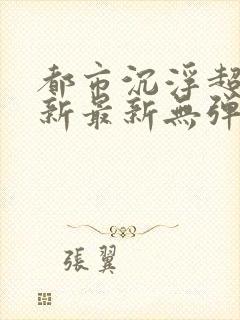 都市沉浮超
新最新無弹
張翼